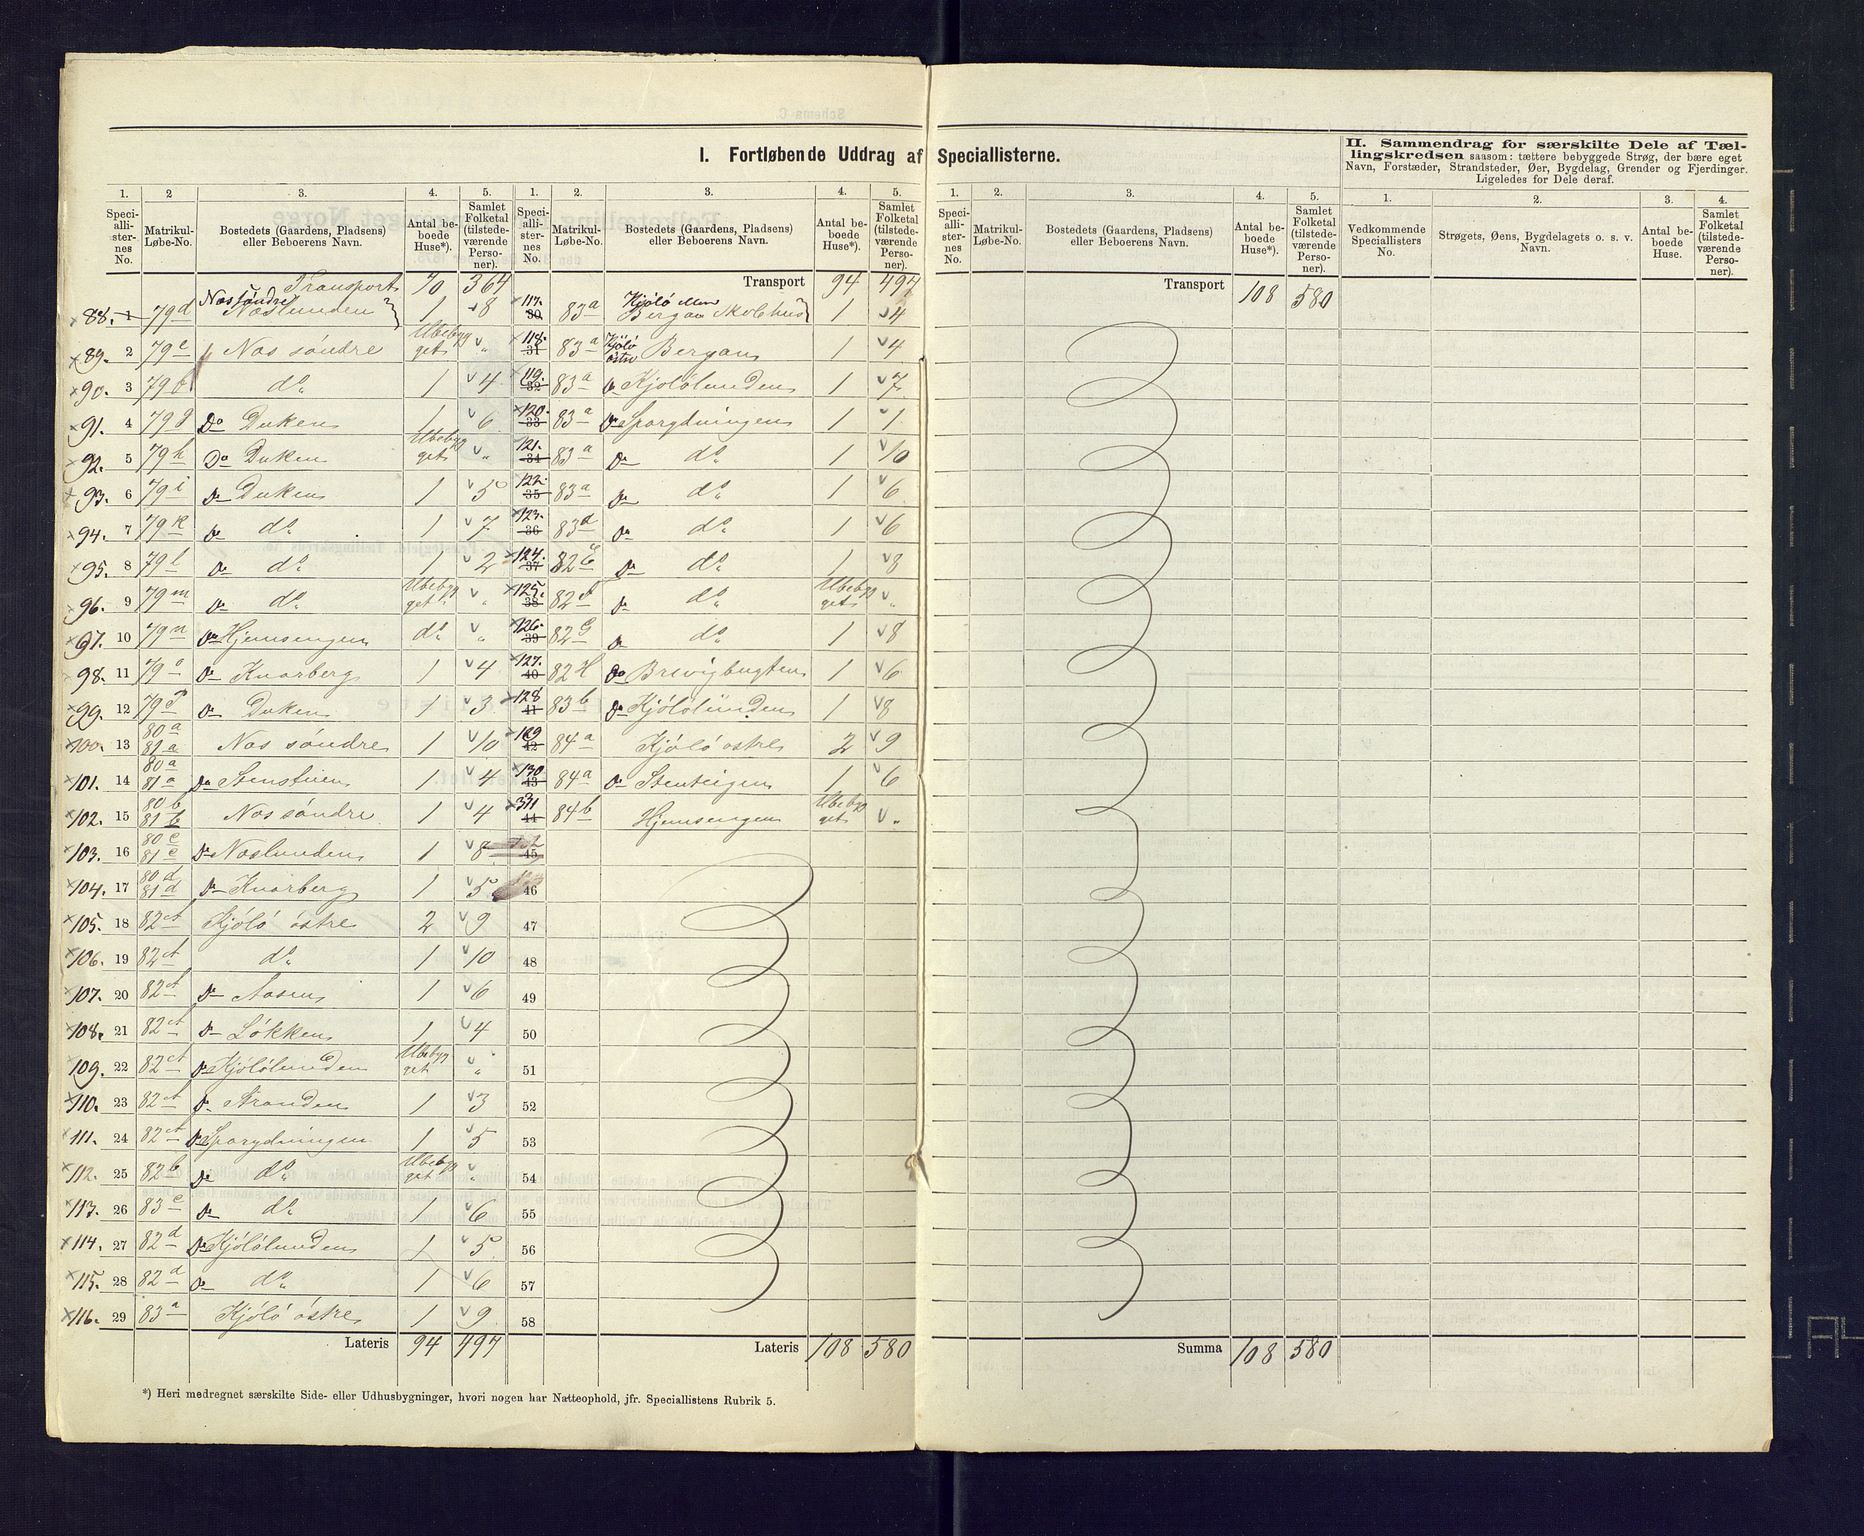 I. Fortløbende Uddrag af Speciallisterne.
II. Sammendrag for særskilte Dele af Tællingskredsen saasom: tættere bebyggede Strøg, der bære eget
Navn, Forstæder, Strandsteder, Øer, Bygdelag, Grender og Fjerdinger.
Ligeledes for Dele deraf.
1. 2 3. 4. 5.
Speciallisternes No. Matrikul-Løbe-No. Bostedets (Gaardens, Pladsens) eller Beboerens Navn. Antal beboede Huse*). Samlet Folketal (tilstedeværende Personer).
Transport 70 364
88. 1 79d Nas søndre Naslunden 1 8
89. 2 79e Nas søndre Ubebygget „
90. 3 79f do 1 4
91. 4 79g Do Duken 1 6
92. 5 79h Do Duken Ubebygget „
93. 6 79i Do Duken 1 5
94. 7 79k Do do 1 7
95. 8 79l Do do 1 2
96. 9 79m Do do Ubebygget „
97. 10 79n Do Hjemsengen do „
98. 11 79o Do Knarberg 1 4
99. 12 79p Do Duken 1 3
100. 13 80a 81a Nas søndre 1 10
101. 14 80a 81a Do Stenstuen 1 4
102. 15 80b 81b Nas søndre 1 4
103. 16 80c 81c Do Naslunden 1 8
104. 17 80d 81d Do Knarberg 1 5
105. 18 82A Kjøló østre 2 9
106. 19 82A do 1 10
107. 20 82A Do Aasen 1 6
108. 21 82A Do Løkken 1 4
109. 22 82A Do Kjølólunden Ubebygget „
110. 23 82A Do Stranden 1 3
111. 24 82A Do Sporgdningen 1 5
112. 25 82b Do do Ubebygget „
113. 26 83c Do do 1 6
114. 27 82d Do Kjølólunden 1 5
115. 28 82d Do do 1 6
116. 29 83a Kjøló østre 1 9
Lateris 94 497
1. 2. 3. 4. 5.
Speciallisternes No. Matrikul-Løbe-No. Bostedets (Gaardens, Pladsens) eller Beboerens Navn. Antal beboede Huse*). Samlet Folketal (tilstedeværende Personer).
Transport 94 497
117. 30 83a Kjøló Bergan Skolehus 1 4
118. 31 83a Kjøló østre Bergan 1 4
119. 32 83a Do Kjølólunden 1 7
120. 33 83a Do Sporgdningen 1 1
121. 34 83a Do do 1 10
122. 35 83a Do do 1 6
123. 36 83a Do do 1 6
124. 37 82E Do do 1 8
125. 38 82F Do do Ubebygget „
126. 39 82G Do do 1 8
127. 40 82H Do Brevigbugten 1 6
128 41 83b Do Kjølólunden 1 8
129 42 84a Kjøló østre 2 9
130 43 84a Do Stenteigen 1 6
131 44 84b Hjemsengen Ubebygget „
45
46
47
48
49
50
51
52
53
54
55
56
57
58
Lateris 108 580
*) Heri medregnet særskilte Side- eller Udhusbygninger, hvori nogen har Natteophold, jfr. Speciallistens Rubrik 5.
1. 2. 3. 4. 5.
Speciallisternes No. Matrikul-Løbe-No. Bostedets (Gaardens, Pladsens) eller Beboerens Navn. Antal beboede Huse*). Samlet Folketal (tilstedeværende Personer).
Transport 108 580
Summa 108 580
1. 2. 3. 4.
Vedkommende Speciallisters No. Strøgets, Øens, Bygdelagets o. s. v. Navn. Antal beboede Huse. Samlet Folketal (tilstedeværende Personer).